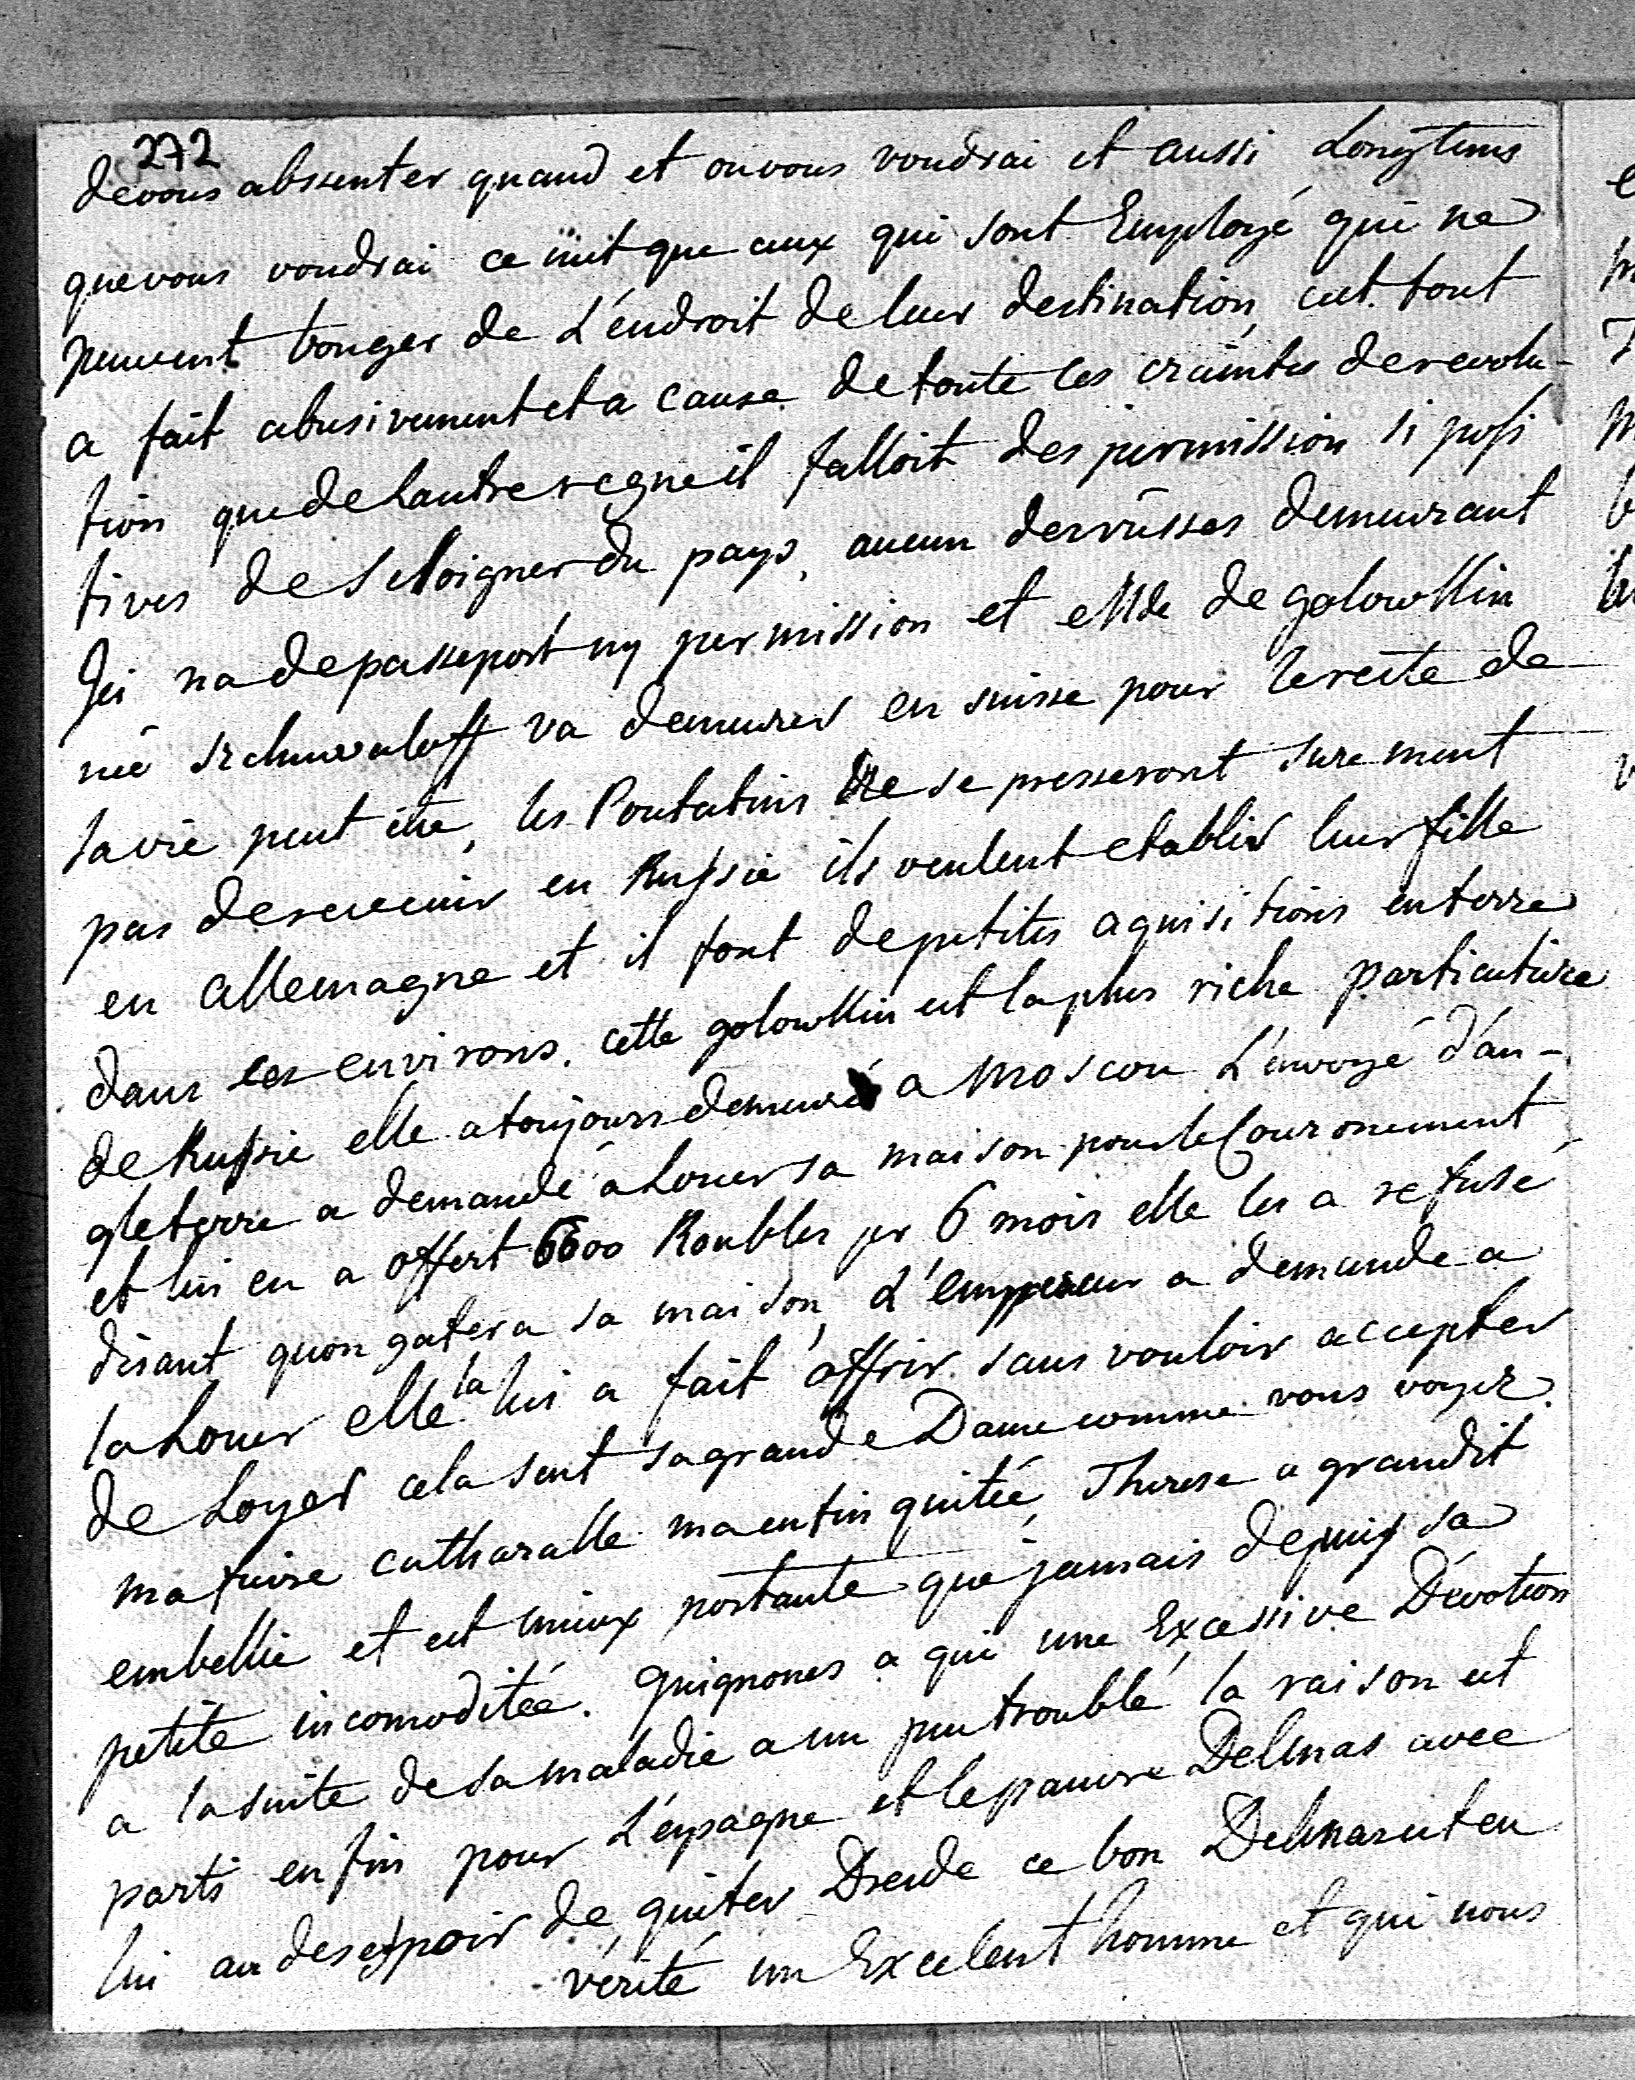 272
de vous absenter quand et ou vous voudrai et aussi Longtems
que vous voudrai ce nict que ceux qui sont Employé qui ne
peuvent bouger de L'éndroit de leur destination, cet tout
a fait abusivement et a cause de toute les craintes de revolu-
tion que de Lautre regne il falloit des permission si posi
tives de s eloigner du pays, aucun des russes demeurant
Ici na de passeport ny permission et Mde de golowkin
née Schuwaloff va demeurer en suisse pour le reste de
sa vie peut être, les Poutatins ne se presseront surement
pas de revenir en Russie ils veulent etablir leur fille
en allemagne et il font de petites aquisitions en terre
dans les environs. cette golowkin est la plus riche particuliere
de Russie elle a toujours demeuré a Moscou L'énvoyé d'án-
gleterre a demandé a Louer sa maison pour le Couronement
et lui en a offert 6600 Roubles pr 6 mois elle les a refusé
disant quon gatera sa maison, L'empereur a demande a
la Louer elle la lui a fait offrir sans vouloir accepter
de Loyer cela sent sa grande Dame comme vous voyez.
ma fievre catharalle ma enfin quitée, Therese a grandit
embellie et est mieux portante que jamais depuis sa
petite incomoditée. Quignones a qui une Excessive Dévotion
a la suite de sa maladie a un peu troublé la raison est
parti enfin pour L'éspagne et le pauvre Delmas avec
lui au desespoir de quiter Dresde ce bon Delmas est en
vérité un Excelent homme et qui nous